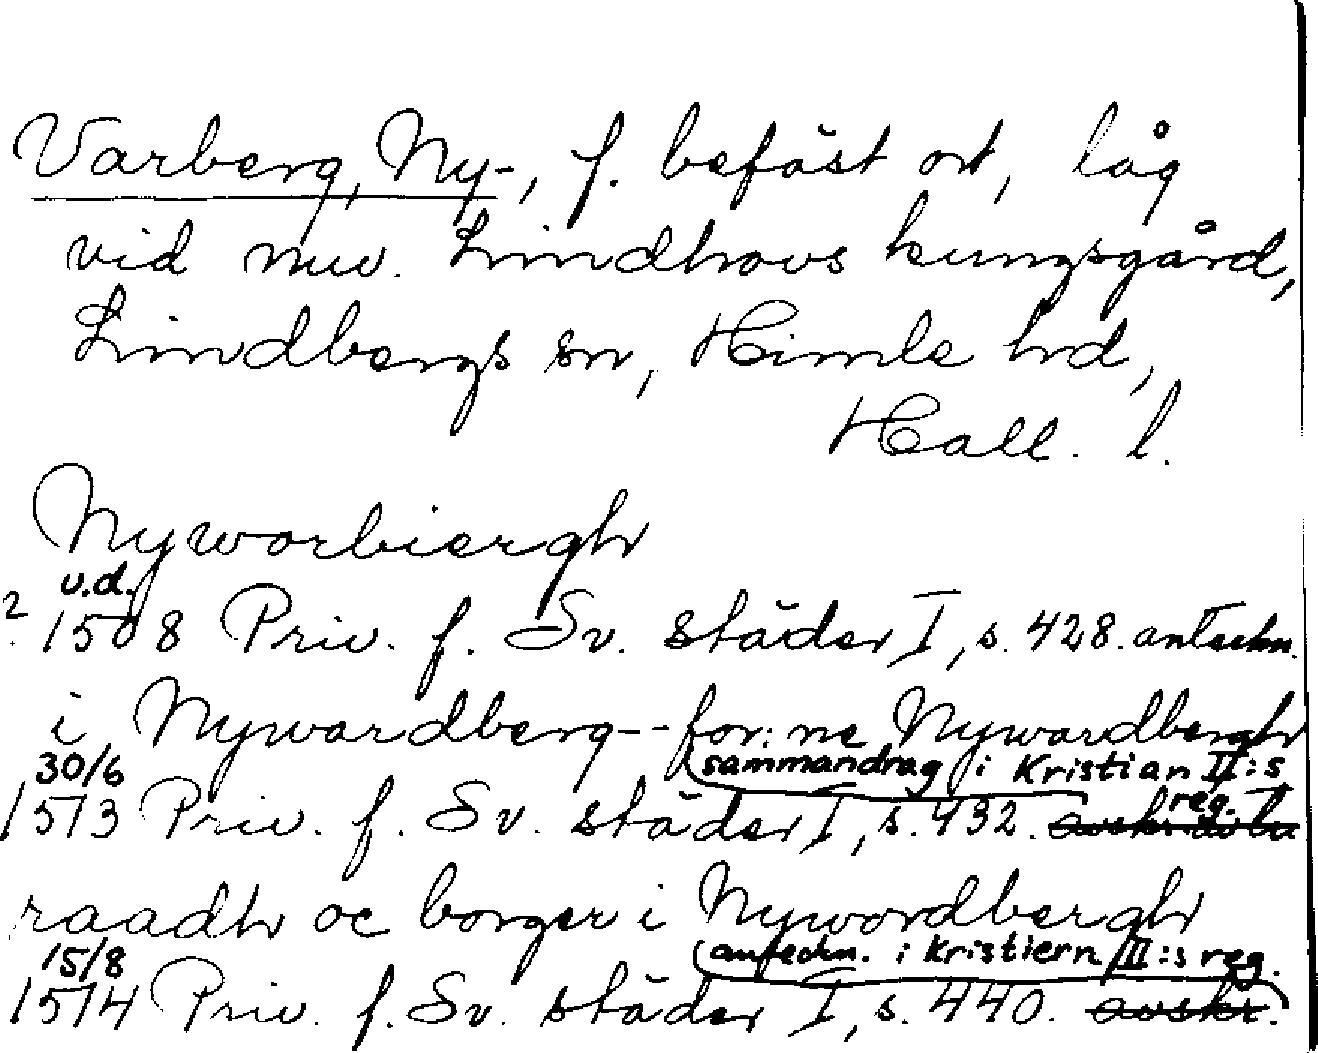 Varberg, Ny-, f. befäst ort, låg
vid nuv. Lindhovs kungsgård,
Lindbergs sn, Himle hd,
Hall. l.
Nyworbiergh
u.d.
? 1508 Priv. f. Sv. städer I, s. 428. anteckn.
i Nywardberg -- for:ne Nywardbergh
30/6 (sammandrag i Kristian II:s reg.
1513 Priv. f. Sv. städer I, s. 432.
raadh oc borger i Nywordbergh
15/8 (anteckn. i Kristiern II:s reg.
1514 Priv. f. Sv. städer I, s. 440. avskr.